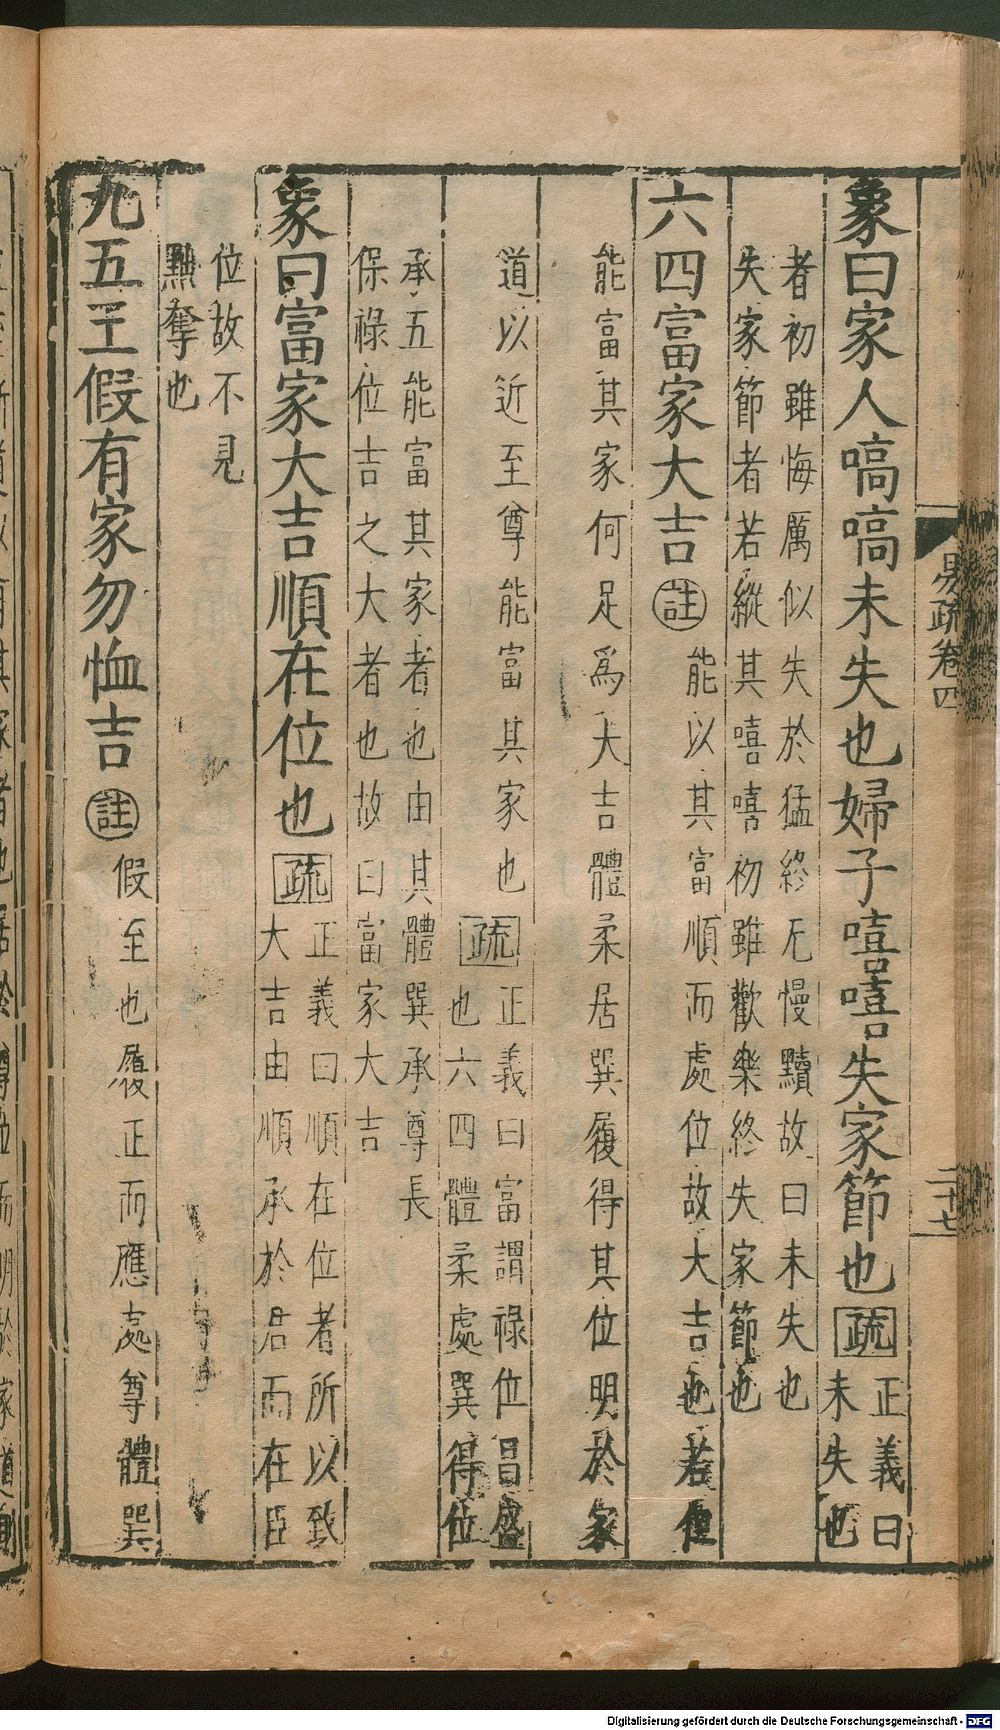 易疏卷四
二十七
象曰家人嗃嗃未失也婦子嘻嘻失家節也疏正義曰
未失也
者初雖悔厲似失於猛終无慢黷故曰未失也
失家節者若縱其嘻嘻初雖歡樂終失家節也
六四富家大吉註能以其富順而處位故大吉也若但
能富其家何足爲大吉體柔居巽履得其位明於家
道以近至尊能富其家也疏正義曰富謂祿位昌盛
也六四體柔處巽得位
承五能富其家者也由其體巽承尊長
保祿位吉之大者也故曰富家大吉
象曰富家大吉順在位也疏正義曰順在位者所以致
大吉由順承於君而在臣
位故不見
黜奪也
九五王假有家勿恤吉註假至也履正而應處尊體巽
Digitalisierung gefördert durch die Deutsche Forschungsgemeinschaft - DFG